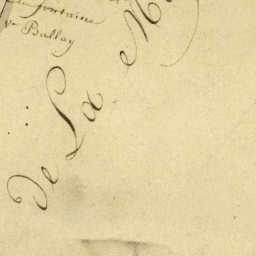 fontaine
Ballay
De La M